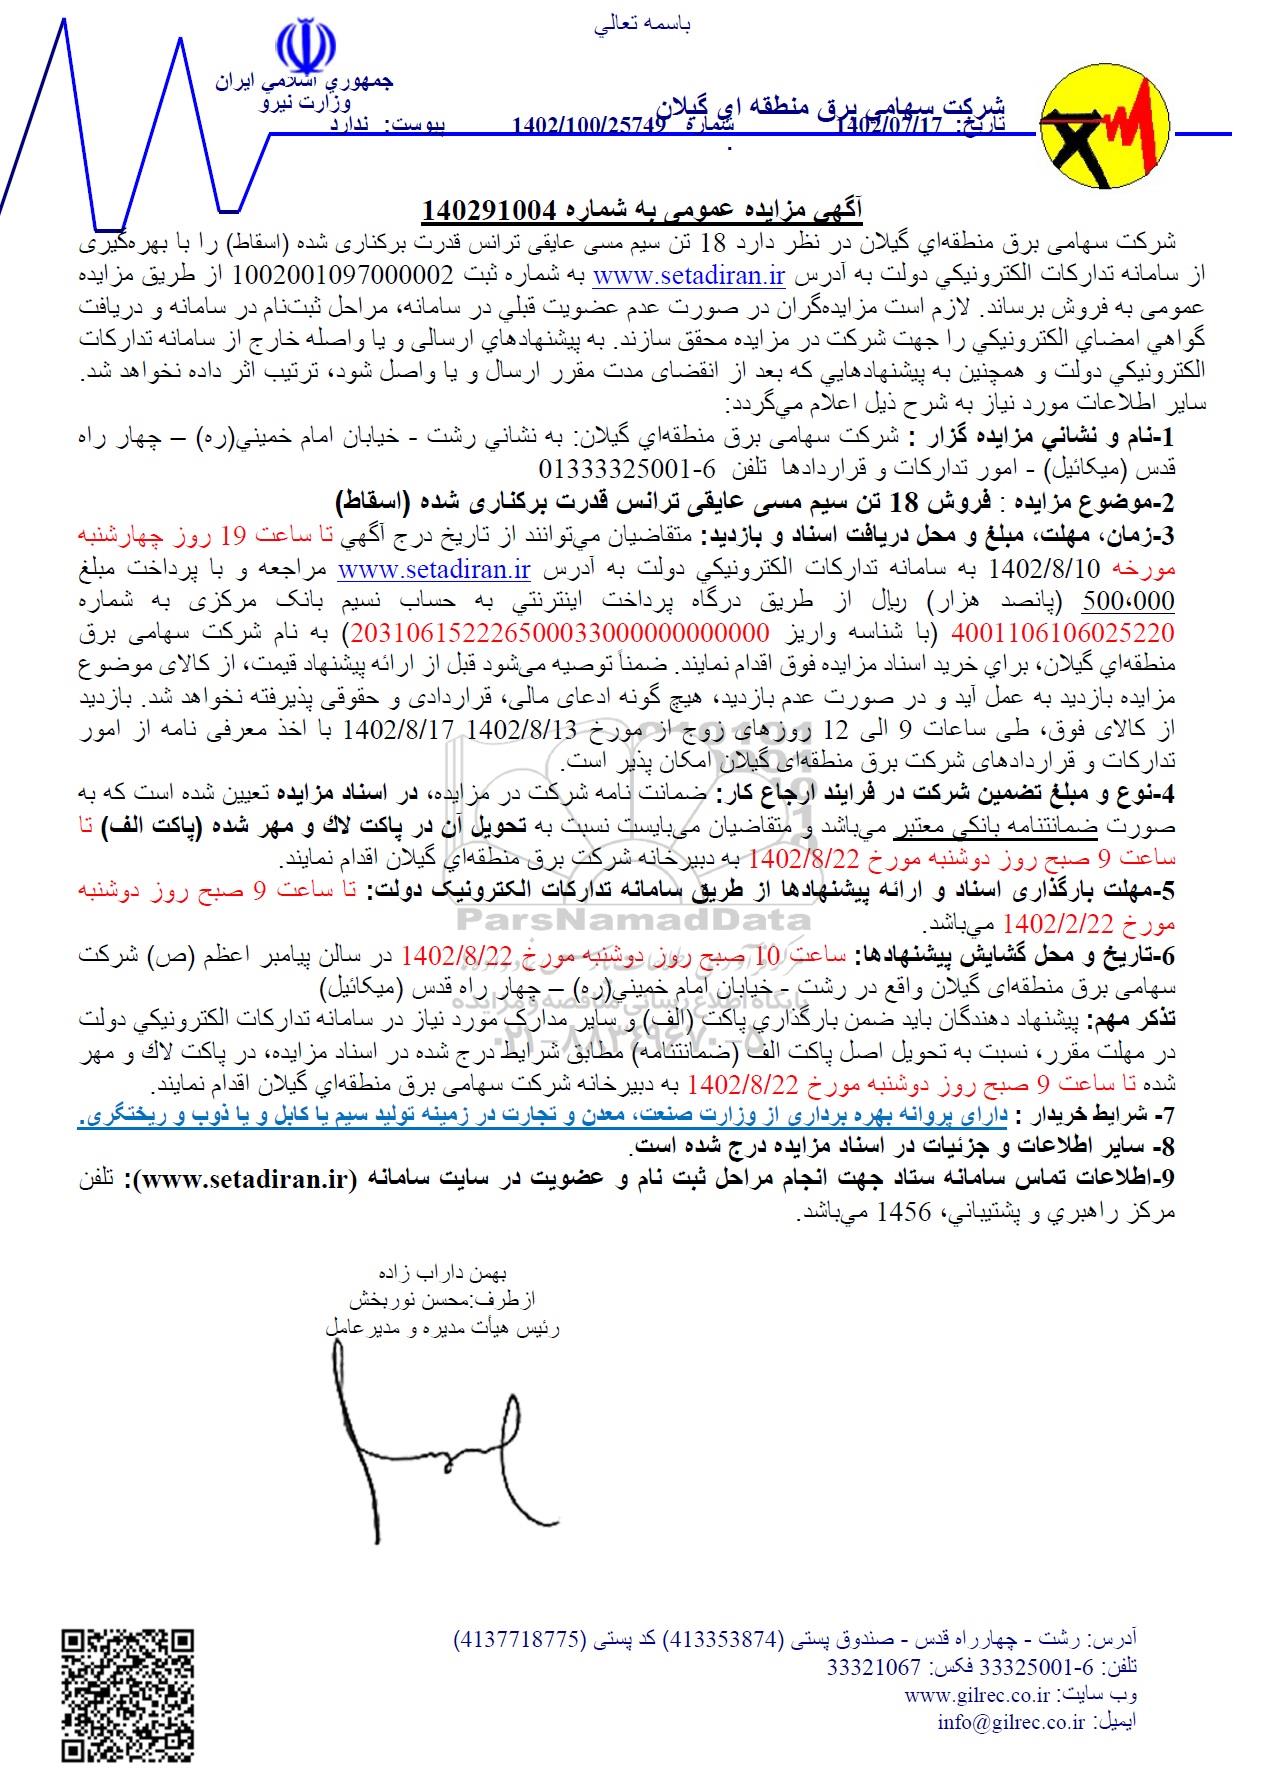 باسمه تعالي
جمهوري اسلامي ايران
وزارت نيرو
شركت سهامي برق منطقه اي گيلان
تاريخ: 1402/07/17 شماره 1402/100/25749 پيوست: ندارد
.
آگهی مزایده عمومی به شماره 140291004
شرکت سهامی برق منطقه‌اي گيلان در نظر دارد 18 تن سیم مسی عایقی ترانس قدرت برکناری شده (اسقاط) را با بهره‌گیری
از سامانه تداركات الكترونيكي دولت به آدرس www.setadiran.ir به شماره ثبت 1002001097000002 از طریق مزایده
عمومی به فروش برساند. لازم است مزایده‌گران در صورت عدم عضويت قبلي در سامانه، مراحل ثبت‌نام در سامانه و دريافت
گواهي امضاي الكترونيكي را جهت شركت در مزایده محقق سازند. به پيشنهادهاي ارسالی و یا واصله خارج از سامانه تداركات
الكترونيكي دولت و همچنين به پيشنهادهايي كه بعد از انقضای مدت مقرر ارسال و یا واصل شود، ترتیب اثر داده نخواهد شد.
ساير اطلاعات مورد نیاز به شرح ذیل اعلام مي‌گردد:
1-نام و نشاني مزایده گزار : شرکت سهامی برق منطقه‌اي گيلان: به نشاني رشت - خيابان امام خميني(ره) – چهار راه
قدس (ميكائيل) - امور تداركات و قراردادها تلفن 6-01333325001
2-موضوع مزایده : فروش 18 تن سیم مسی عایقی ترانس قدرت برکناری شده (اسقاط)
3-زمان، مهلت، مبلغ و محل دریافت اسناد و بازدید: متقاضیان مي‌توانند از تاریخ درج آگهي تا ساعت 19 روز چهارشنبه
مورخه 1402/8/10 به سامانه تداركات الكترونيكي دولت به آدرس www.setadiran.ir مراجعه و با پرداخت مبلغ
500،000 (پانصد هزار) ریال از طریق درگاه پرداخت اینترنتي به حساب نسیم بانک مرکزی به شماره
4001106106025220 (با شناسه واریز 203106152226500033000000000000) به نام شرکت سهامی برق
منطقه‌اي گیلان، براي خرید اسناد مزایده فوق اقدام نمایند. ضمناً توصیه می‌شود قبل از ارائه پیشنهاد قیمت، از کالای موضوع
مزایده بازدید به عمل آید و در صورت عدم بازدید، هیچ گونه ادعای مالی، قراردادی و حقوقی پذیرفته نخواهد شد. بازدید
از کالای فوق، طی ساعات 9 الی 12 روزهای زوج از مورخ 1402/8/13 1402/8/17 با اخذ معرفی نامه از امور
تدارکات و قراردادهای شرکت برق منطقه‌ای گیلان امکان پذیر است.
4-نوع و مبلغ تضمین شرکت در فرایند ارجاع کار: ضمانت نامه شرکت در مزایده، در اسناد مزایده تعیین شده است که به
صورت ضمانتنامه بانكي معتبر مي‌باشد و متقاضیان می‌بایست نسبت به تحویل آن در پاکت لاك و مهر شده (پاکت الف) تا
ساعت 9 صبح روز دوشنبه مورخ 1402/8/22 به دبیرخانه شرکت برق منطقه‌اي گیلان اقدام نمایند.
5-مهلت بارگذاری اسناد و ارائه پیشنهادها از طریق سامانه تدارکات الکترونیک دولت: تا ساعت 9 صبح روز دوشنبه
مورخ 1402/2/22 مي‌باشد.
ParsNamadData
6-تاریخ و محل گشایش پیشنهادها: ساعت 10 صبح روز دوشنبه مورخ 1402/8/22 در سالن پیامبر اعظم (ص) شرکت
سهامی برق منطقه‌ای گیلان واقع در رشت - خیابان امام خمیني(ره) – چهار راه قدس (میکائیل)
پایگاه اطلاع رسانی مناقصه و مزایده
تذکر مهم: پیشنهاد دهندگان باید ضمن بارگذاري پاکت (الف) و سایر مدارک مورد نیاز در سامانه تدارکات الکترونیکي دولت
۰۲۱-۸۸۳۴۹۶۷۰-۵
در مهلت مقرر، نسبت به تحویل اصل پاکت الف (ضمانتنامه) مطابق شرایط درج شده در اسناد مزایده، در پاکت لاك و مهر
شده تا ساعت 9 صبح روز دوشنبه مورخ 1402/8/22 به دبیرخانه شرکت سهامی برق منطقه‌اي گیلان اقدام نمایند.
7- شرایط خریدار : دارای پروانه بهره برداری از وزارت صنعت، معدن و تجارت در زمینه تولید سیم یا کابل و یا ذوب و ریختگری.
8- سایر اطلاعات و جزئیات در اسناد مزایده درج شده است.
9-اطلاعات تماس سامانه ستاد جهت انجام مراحل ثبت نام و عضویت در سایت سامانه (www.setadiran.ir): تلفن
مرکز راهبري و پشتیباني، 1456 مي‌باشد.
بهمن داراب زاده
ازطرف:محسن نوربخش
رئيس هيأت مديره و مديرعامل
آدرس: رشت - چهارراه قدس - صندوق پستی (413353874) کد پستی (4137718775)
تلفن: 6-33325001 فکس: 33321067
وب سایت: www.gilrec.co.ir
ایمیل: info@gilrec.co.ir